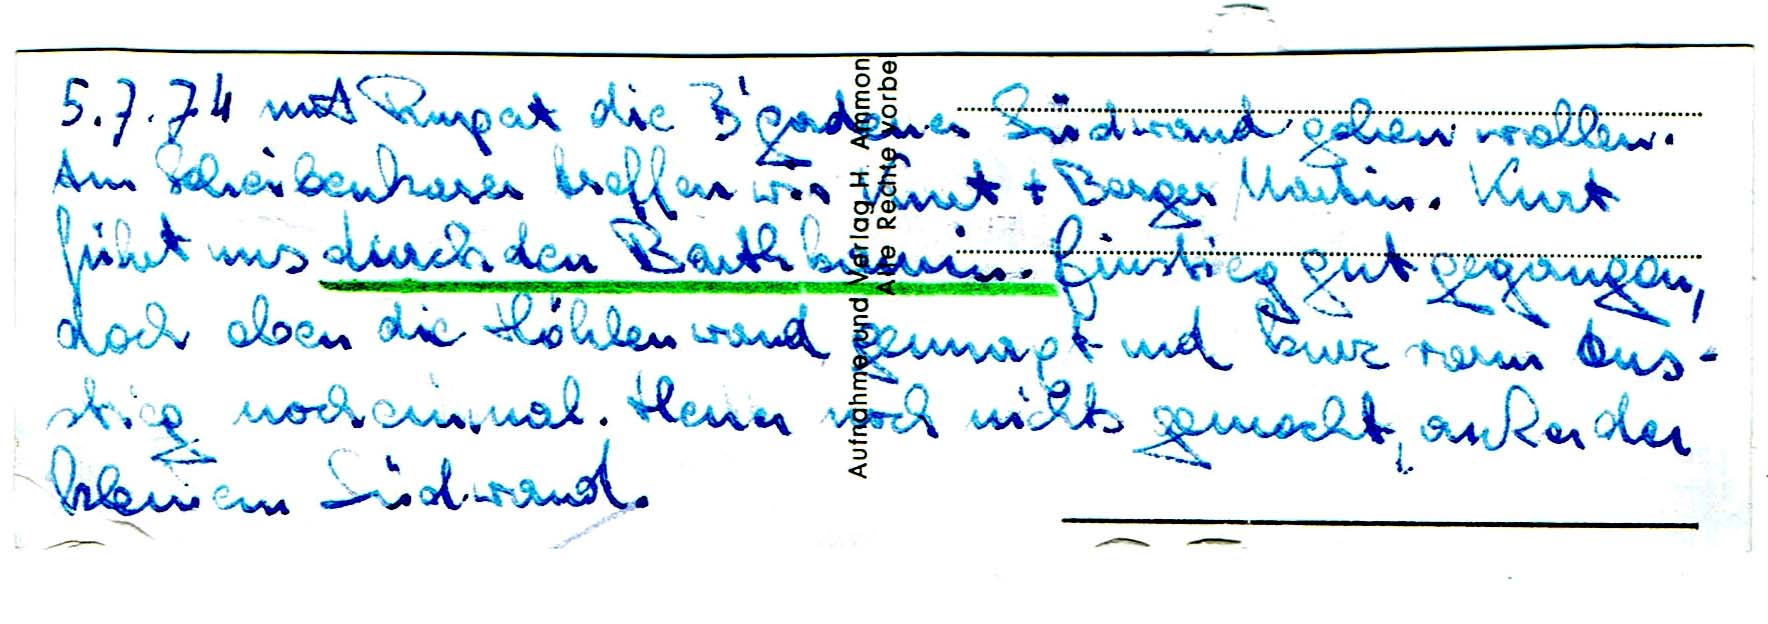 5.7.74 mit Rupert die B'gadener Südwand gehen wollen.
Am Scheibenkaser treffen wir Knut + Berger Martin. Kurt
führt uns durch den Barthkamin. Einstieg gut gegangen,
doch oben die Höhlenwand genuagt und kurz vorm Aus-
stieg noch einmal. Heuer noch nichts gemacht, außer der
kleinen Südwand.
Aufnahme und Verlag H. Ammon
Alle Rechte vorbe